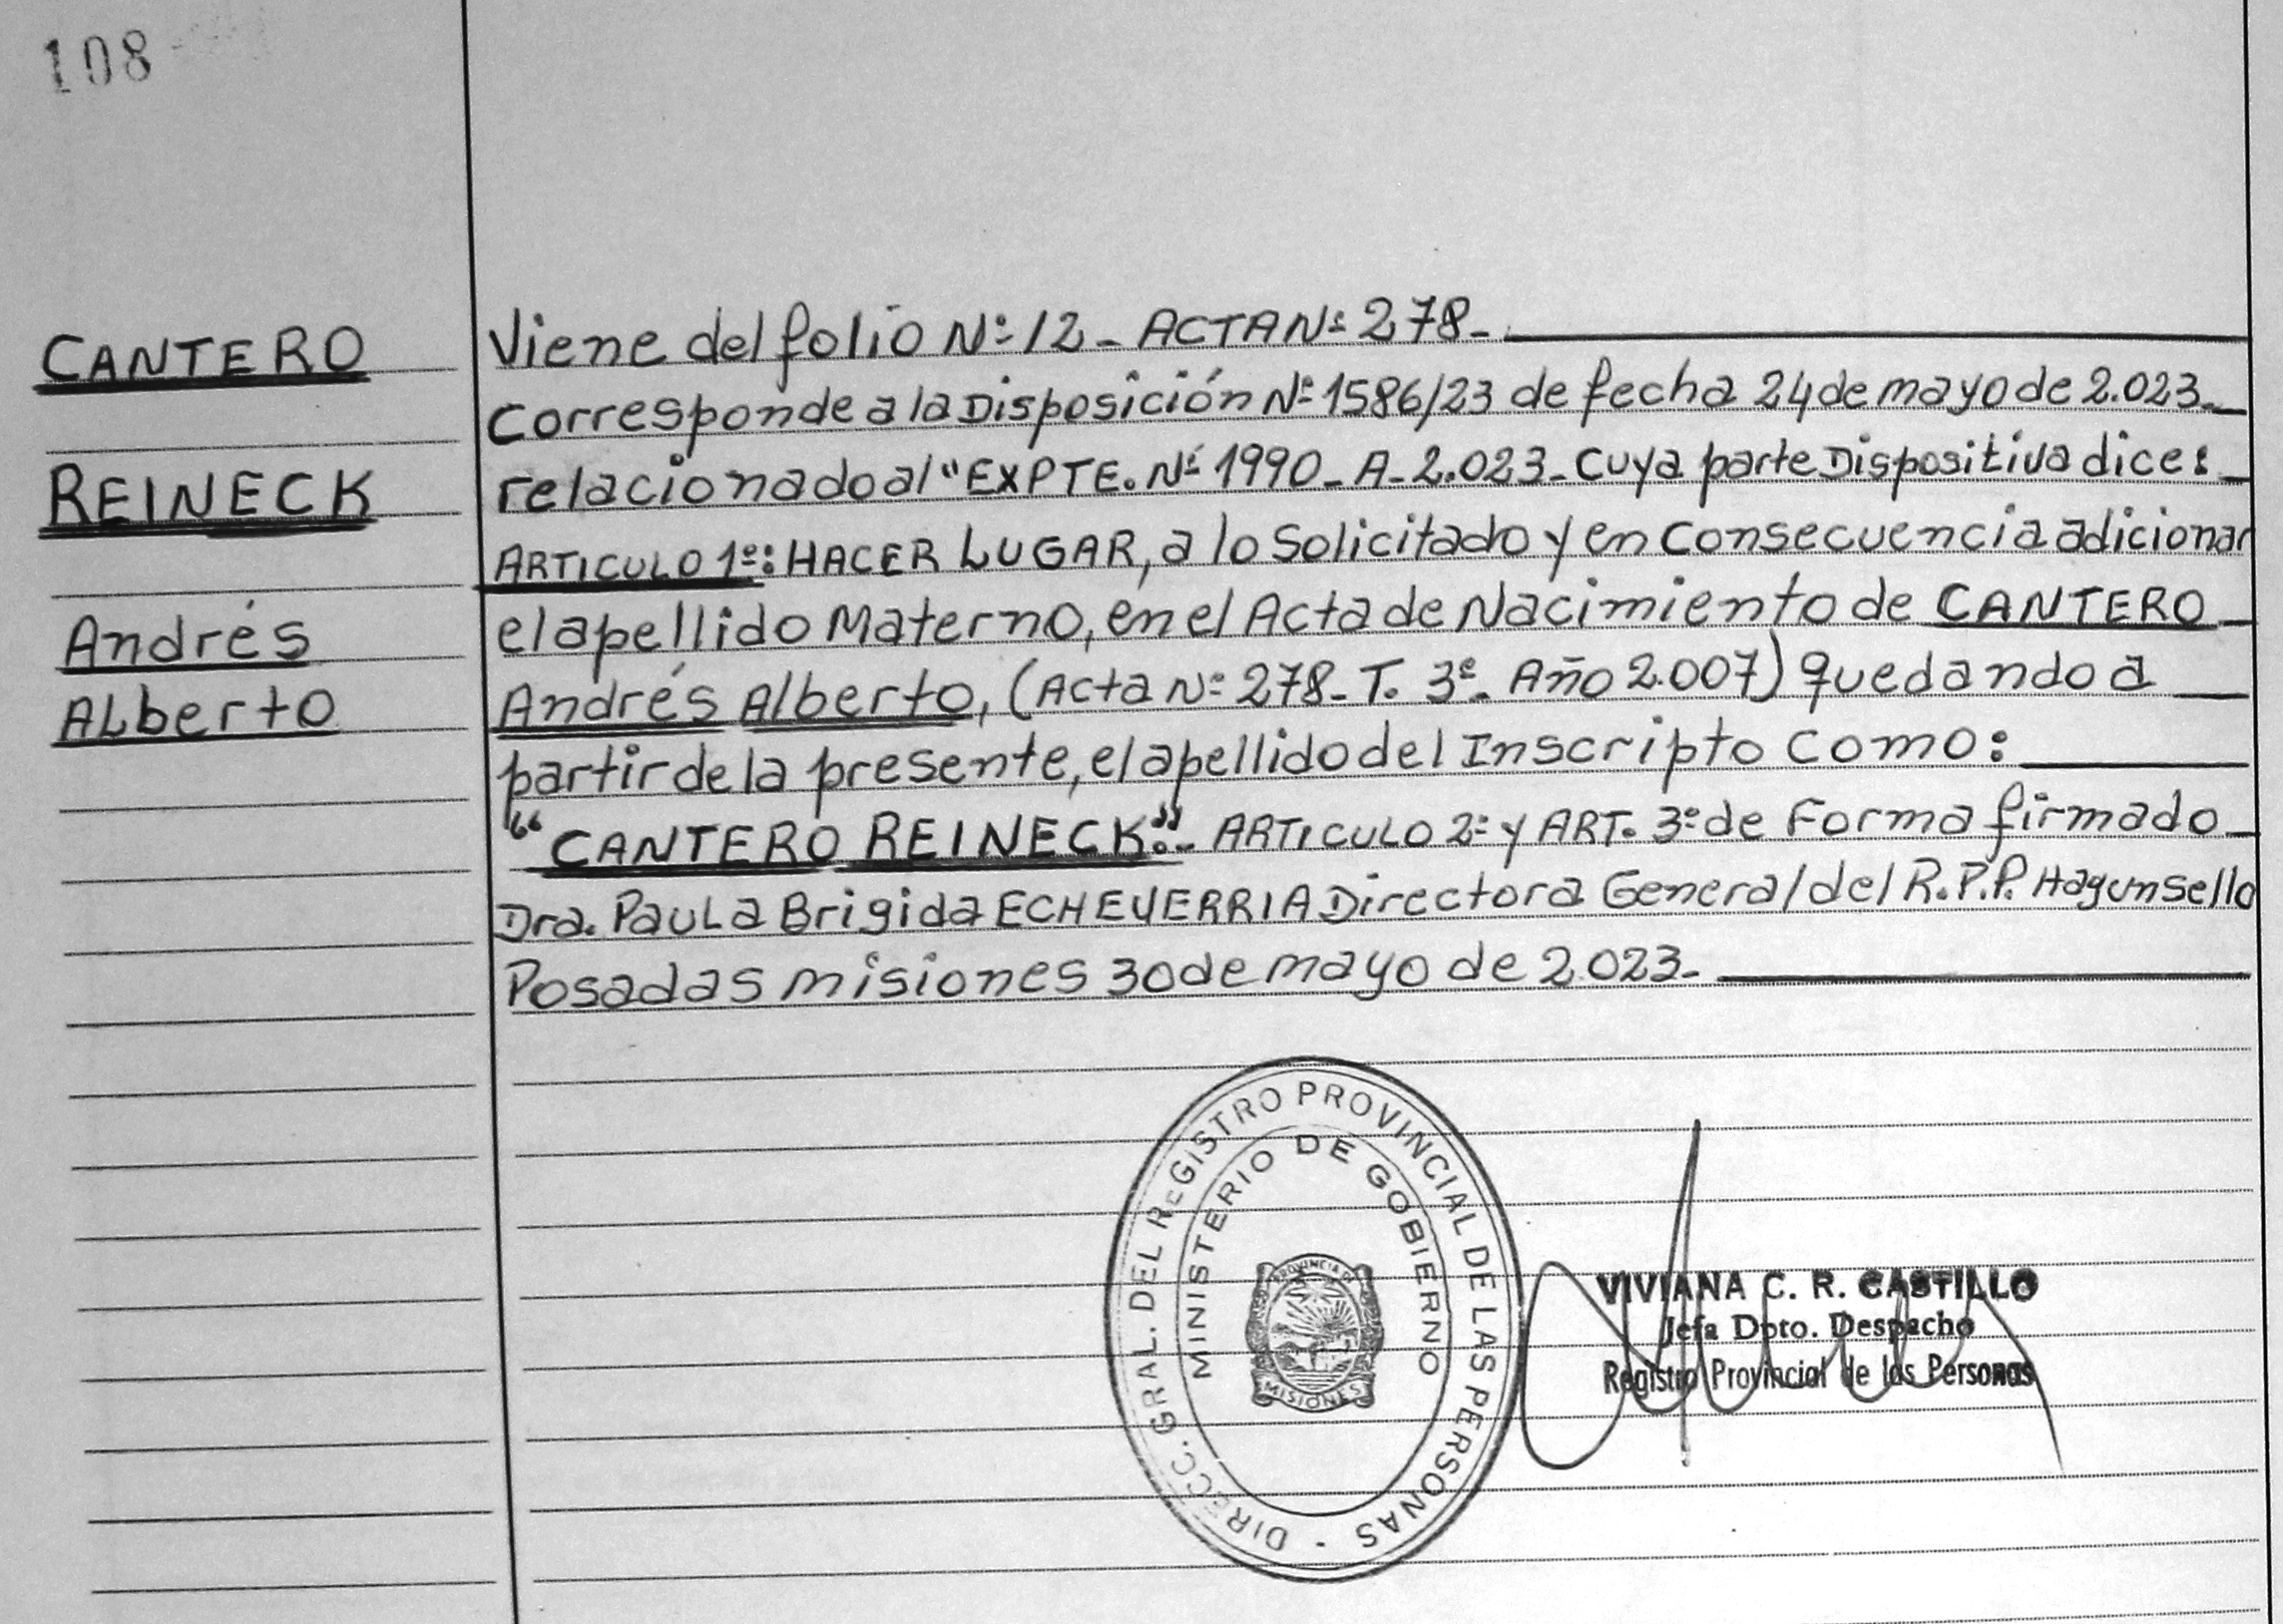 108
CANTERO
REINECK
Andrés
ALberto
Viene del folio Nº 12 - ACTA Nº 278 -
Corresponde a la Disposición Nº 1586/23 de fecha 24 de mayo de 2.023.-
relacionado al "EXPTE. Nº 1990 - A - 2.023 - Cuya parte Dispositiva dice:
ARTICULO 1º: HACER LUGAR, a lo Solicitado y en Consecuencia adicionar
el apellido Materno, en el Acta de Nacimiento de CANTERO
Andrés Alberto, (Acta Nº 278 - T. 3º - Año 2.007) quedando a
partir de la presente, el apellido del Inscripto Como:
"CANTERO REINECK".- ARTICULO 2º y ART. 3º de Forma firmado
Dra. PAULa Brigida ECHEVERRIA Directora General del R.P.P. Hay un sello
Posadas misiones 30 de mayo de 2.023.-
DIRECC. GRAL. DEL REGISTRO PROVINCIAL DE LAS PERSONAS -
MINISTERIO DE GOBIERNO
PROVINCIA DE
MISIONES
VIVIANA C. R. CASTILLO
Jefa Dpto. Despacho
Registro Provincial de las Personas